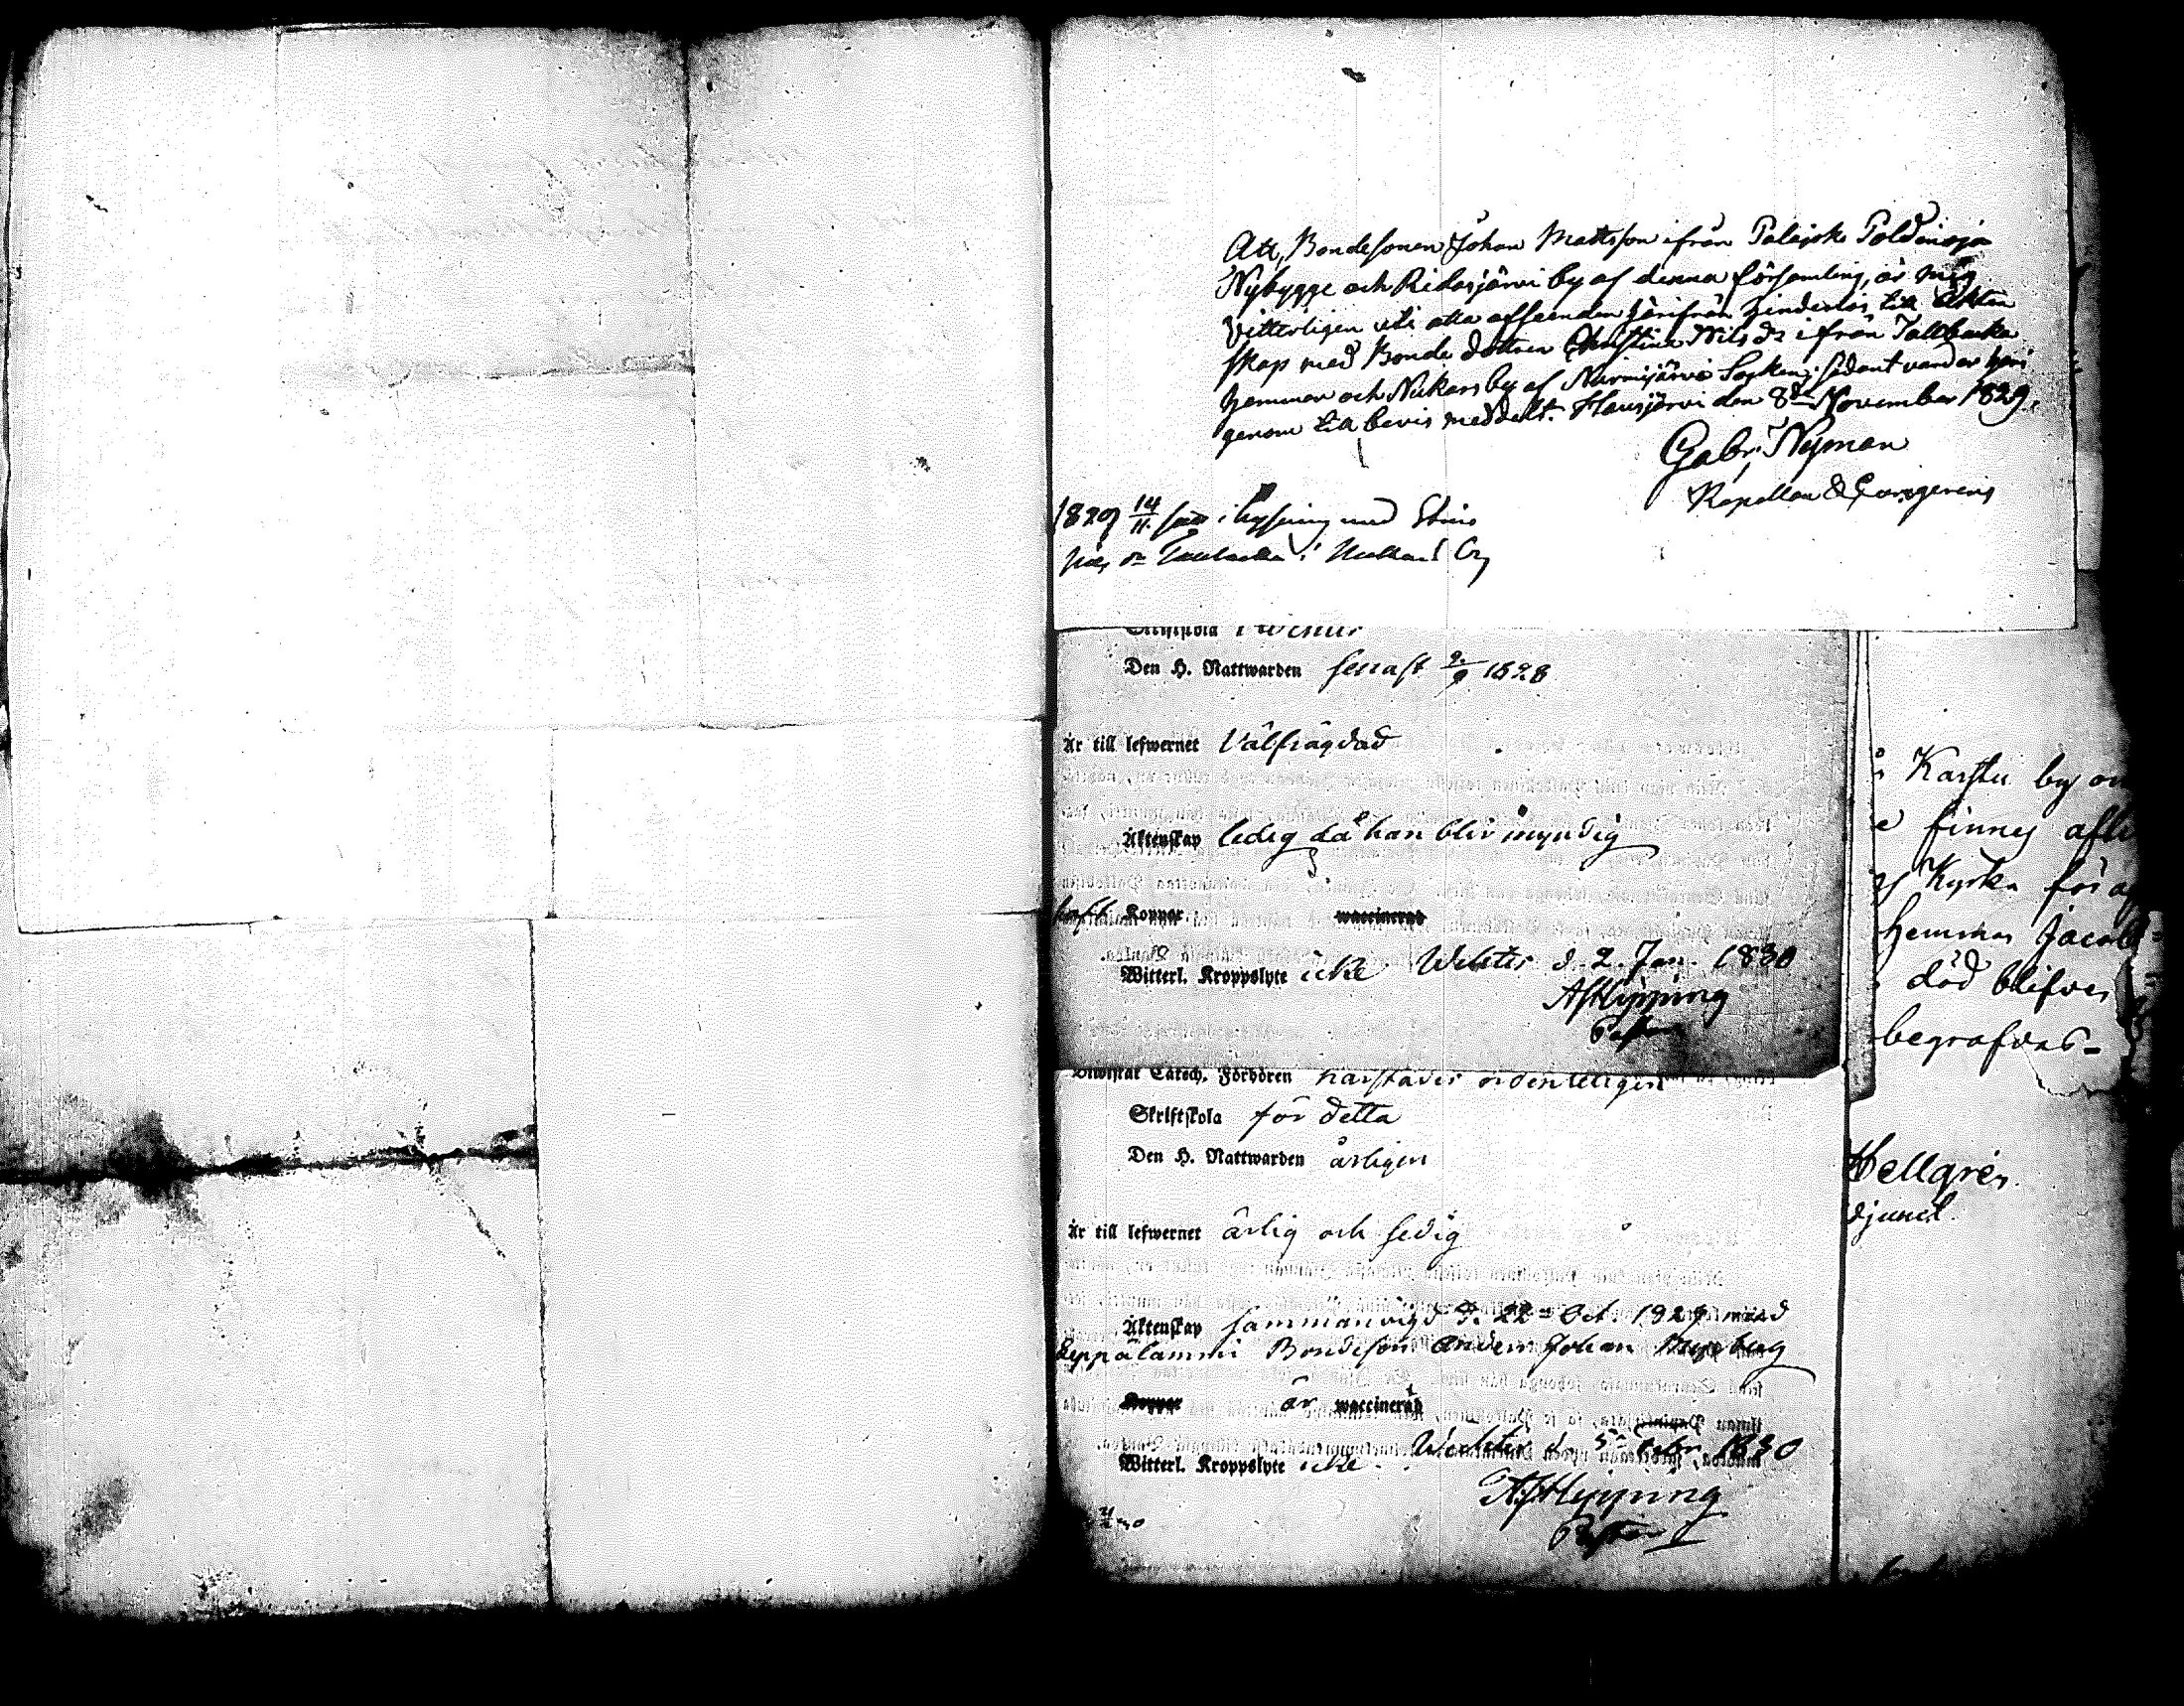 Att, Bondesonen Johan Mattsson ifrån Palajoki
Nybygge och Ridasjärvi by af denna församling, är mig
Vitterligen uti alla afseenden härifrån hinderlös till Äkten
skap med Bonde dottren Christina Nils dr ifrån Tallbacka
hemman och Nukars by af Nurmijärvi Socken; sådant varder häri
genom till bevis meddelt. Hausjärvi den 8de November 1829.
Gabr. Nyman
Kapellan &
1829 14/11 i lysning med Stina
i by
Den H. Nattwarden senast 2/9 1828
Är till lefwernet Välfrägdad
Äktenskap ledig då han blir myndig
haft Koppor waccinerad
Witterl. Kroppslyte icke Wichtis d. 2. Jan. 1830
AJHipping
Past
Catech. Förhören ordenteligen
Skriftskola för detta
Den H. Nattwarden årligen
Är till lefwernet ärlig och sedig
Äktenskap sammanvigd d. 22 Oct. 1829 med
Leppälammi Bondeson Anders Johan
Koppor är waccinerad
Wichtis d. 5 Febr. 1830
Witterl. Kroppslyte icke
AJHipping
Pastor
Karstu by
finnes
Kyrka för
hemman Jacob
död blifven
begrafvas-
Hellgrén
djunct.